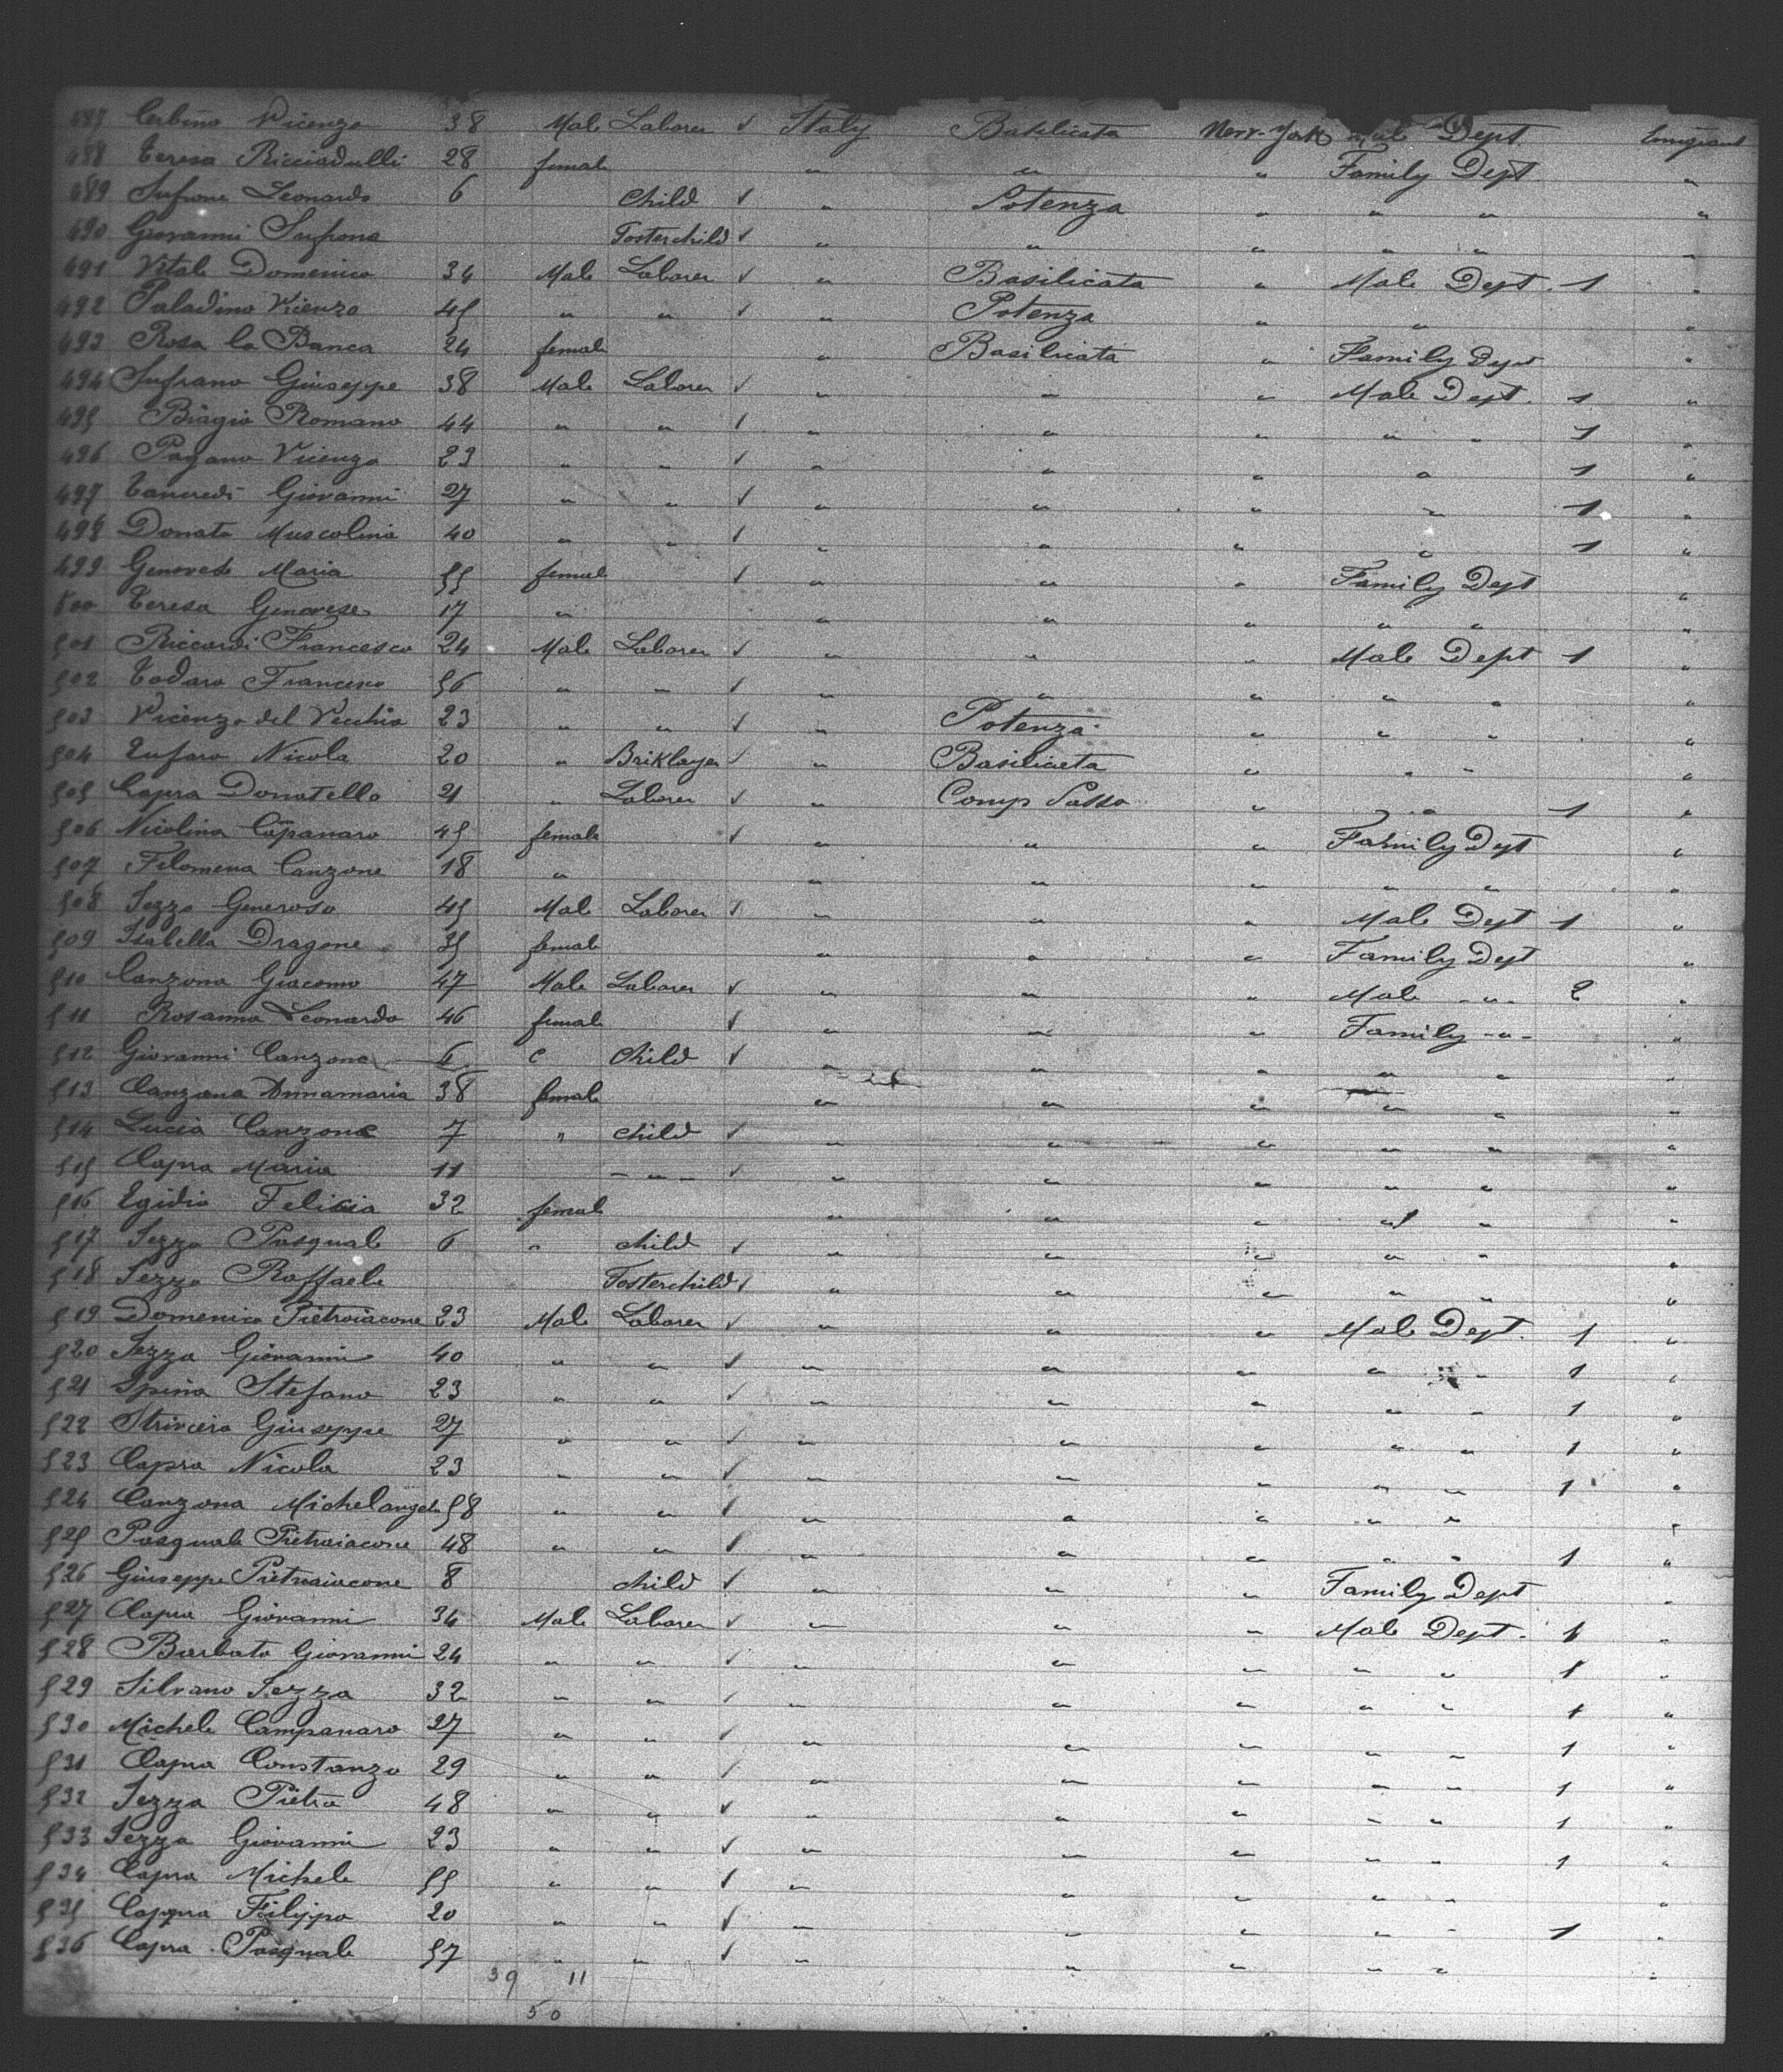 487 Cerbino Vicenzo 38 Male Laborer √ Italy Basilicata New-York Male Dept. Emigrant
488 Teresa Ricciadulli 28 female " " " Family Dept "
489 Sufrone Leonardo 6 Child √ " Potenza " " " "
490 Giovanni Sufrona Fosterchild √ " " " " " "
491 Vitale Domenico 34 Male Laborer √ " Basilicata " Male Dept. 1 "
492 Paladino Vicenzo 45 " " √ " Potenza " " "
493 Rosa la Banca 24 female " Basilicata " Family Dept "
494 Sufrano Giuseppe 38 Male Laborer √ " " " Male Dept. 1 "
495 Biagio Romano 44 " " √ " " " " " 1 "
496 Pagano Vicenzo 23 " " √ " " " " 1 "
497 Tancredi Giovanni 27 " " √ " " " " 1 "
498 Donato Muscolino 40 " " √ " " " " 1 "
499 Genovese Maria 55 female √ " " " Family Dept "
500 Teresa Genovese 17 " " " " " " "
501 Riccardi Francesco 24 Male Laborer √ " " " Male Dept 1 "
502 Todaro Francesco 56 " " √ " " " " " "
503 Vicenzo del Vecchio 23 " " √ " Potenza " " " "
504 Tufaro Nicola 20 " Briklayer √ " Basilicata " " " "
505 Capra Donatello 21 " Laborer √ " Comp Salso " " " 1 "
506 Nicolina Campanaro 45 female √ " " " Family Dept "
507 Filomena Canzone 18 " " " " " " "
508 Iezzo Generoso 45 Male Laborer √ " " " Male Dept 1 "
509 Isabella Dragone 35 female " " " Family Dept "
510 Canzona Giacomo 47 Male Laborer √ " " " Male -"- 2 "
511 Rosanna Leonardo 46 female √ " " " Family -"- "
512 Giovanni Canzona 6 c Child √ " " " " " "
513 Canzona Annamaria 38 female " " " " " "
514 Lucia Canzona 7 " child √ " " " " " "
515 Capra Maria 11 -"- √ " " " " " "
516 Egidio Felicia 32 female " " " " " "
517 Iezzo Pasquale 6 " child √ " " " " " "
518 Iezzo Raffaele Fosterchild √ " " " " " "
519 Domenico Pietroiacone 23 Male Laborer √ " " " Male Dept. 1 "
520 Iezza Giovanni 40 " " √ " " " " " 1 "
521 Spina Stefano 23 " " √ " " " " " 1 "
522 Giuseppe 27 " " √ " " " " " 1 "
523 Capra Nicola 23 " " √ " " " " " 1 "
524 Canzona Michelangelo 58 " " √ " " " " " "
525 Pasquale Pietroiacone 48 " " √ " " " " " 1 "
526 Giuseppe Pietroiacone 8 child √ " " " Family Dept "
527 Capra Giovanni 34 Male Laborer √ " " " Male Dept. 1 "
528 Barbato Giovanni 24 " " √ " " " " " 1 "
529 Silvano Iezza 32 " " √ " " " " " 1 "
530 Michele Campanaro 27 " " √ " " " " " 1 "
531 Capra Constanzo 29 " " √ " " " " " 1 "
532 Iezza Pietro 48 " " √ " " " " " 1 "
533 Iezza Giovanni 23 " " √ " " " " " 1 "
534 Capra Michele 55 " " √ " " " " " "
535 Capra Filippo 20 " " √ " " " " " 1 "
536 Capra Pasquale 57 " " √ " " " " " "
39 11
50